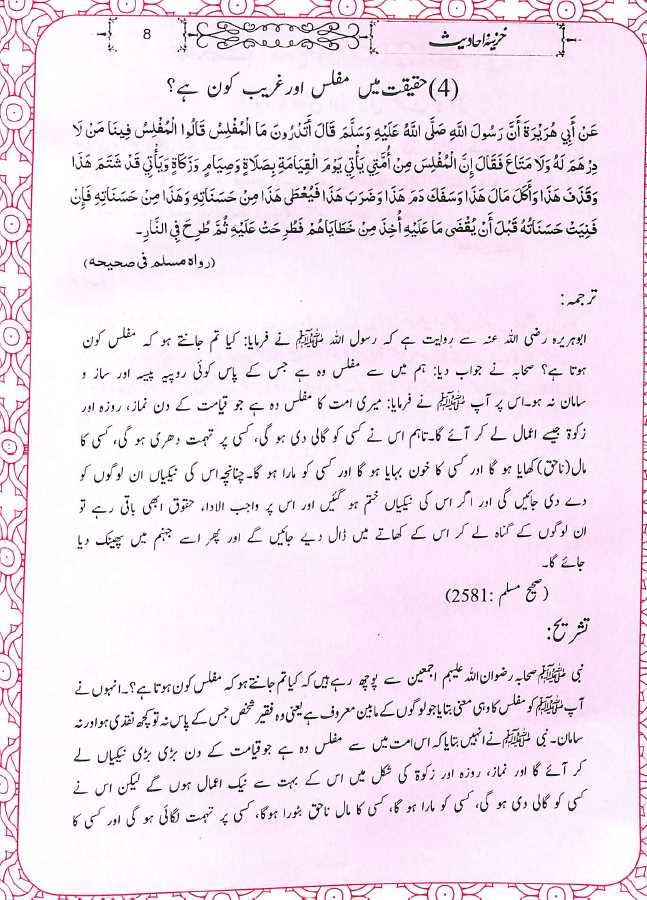 خزینۂ احادیث
8
(4) حقیقت میں مفلس اور غریب کون ہے؟
عَنْ أَبِي هُرَيْرَةَ أَنَّ رَسُولَ اللَّهِ صَلَّى اللَّهُ عَلَيْهِ وَسَلَّمَ قَالَ أَتَدْرُونَ مَا الْمُفْلِسُ قَالُوا الْمُفْلِسُ فِينَا مَنْ لَا
دِرْهَمَ لَهُ وَلَا مَتَاعَ فَقَالَ إِنَّ الْمُفْلِسَ مِنْ أُمَّتِي يَأْتِي يَوْمَ الْقِيَامَةِ بِصَلَاةٍ وَصِيَامٍ وَزَكَاةٍ وَيَأْتِي قَدْ شَتَمَ هَذَا
وَقَذَفَ هَذَا وَأَكَلَ مَالَ هَذَا وَسَفَكَ دَمَ هَذَا وَضَرَبَ هَذَا فَيُعْطَى هَذَا مِنْ حَسَنَاتِهِ وَهَذَا مِنْ حَسَنَاتِهِ فَإِنْ
فَنِيَتْ حَسَنَاتُهُ قَبْلَ أَنْ يُقْضَى مَا عَلَيْهِ أُخِذَ مِنْ خَطَايَاهُمْ فَطُرِحَتْ عَلَيْهِ ثُمَّ طُرِحَ فِي النَّارِ۔
(رواہ مسلم فی صحیحہ)
ترجمہ:
ابوہریرہ رضی اللہ عنہ سے روایت ہے کہ رسول اللہ ﷺ نے فرمایا: کیا تم جانتے ہو کہ مفلس کون
ہوتا ہے؟ صحابہ نے جواب دیا: ہم میں سے مفلس وہ ہے جس کے پاس کوئی روپیہ پیسہ اور ساز و
سامان نہ ہو۔اس پر آپ ﷺ نے فرمایا: میری امت کا مفلس وہ ہے جو قیامت کے دن نماز، روزہ اور
زکوۃ جیسے اعمال لے کر آئے گا۔تاہم اس نے کسی کو گالی دی ہو گی، کسی پر تہمت دھری ہو گی، کسی کا
مال(ناحق)کھایا ہو گا اور کسی کا خون بہایا ہو گا اور کسی کو مارا ہو گا۔چنانچہ اس کی نیکیاں ان لوگوں کو
دے دی جائیں گی اور اگر اس کی نیکیاں ختم ہو گئیں اور اس پر واجب الاداء حقوق ابھی باقی رہے تو
ان لوگوں کے گناہ لے کر اس کے کھاتے میں ڈال دیے جائیں گے اور پھر اسے جہنم میں پھینک دیا
جائے گا۔
(صحیح مسلم :2581)
تشریح:
نبی ﷺ صحابہ رضوان اللہ علیہم اجمعین سے پوچھ رہے ہیں کہ کیا تم جانتے ہو کہ مفلس کون ہوتا ہے؟۔انہوں نے
آپ ﷺ کو مفلس کا وہی معنی بتایا جو لوگوں کے مابین معروف ہے یعنی وہ فقیر شخص جس کے پاس نہ تو کچھ نقدی ہو اور نہ
سامان۔ نبی ﷺ نے انہیں بتایا کہ اس امت میں سے مفلس وہ ہے جو قیامت کے دن بڑی بڑی نیکیاں لے
کر آئے گا اور نماز، روزہ اور زکوۃ کی شکل میں اس کے بہت سے نیک اعمال ہوں گے لیکن اس نے
کسی کو گالی دی ہو گی، کسی کو مارا ہو گا، کسی کا مال ناحق بٹورا ہوگا، کسی پر تہمت لگائی ہو گی اور کسی کا